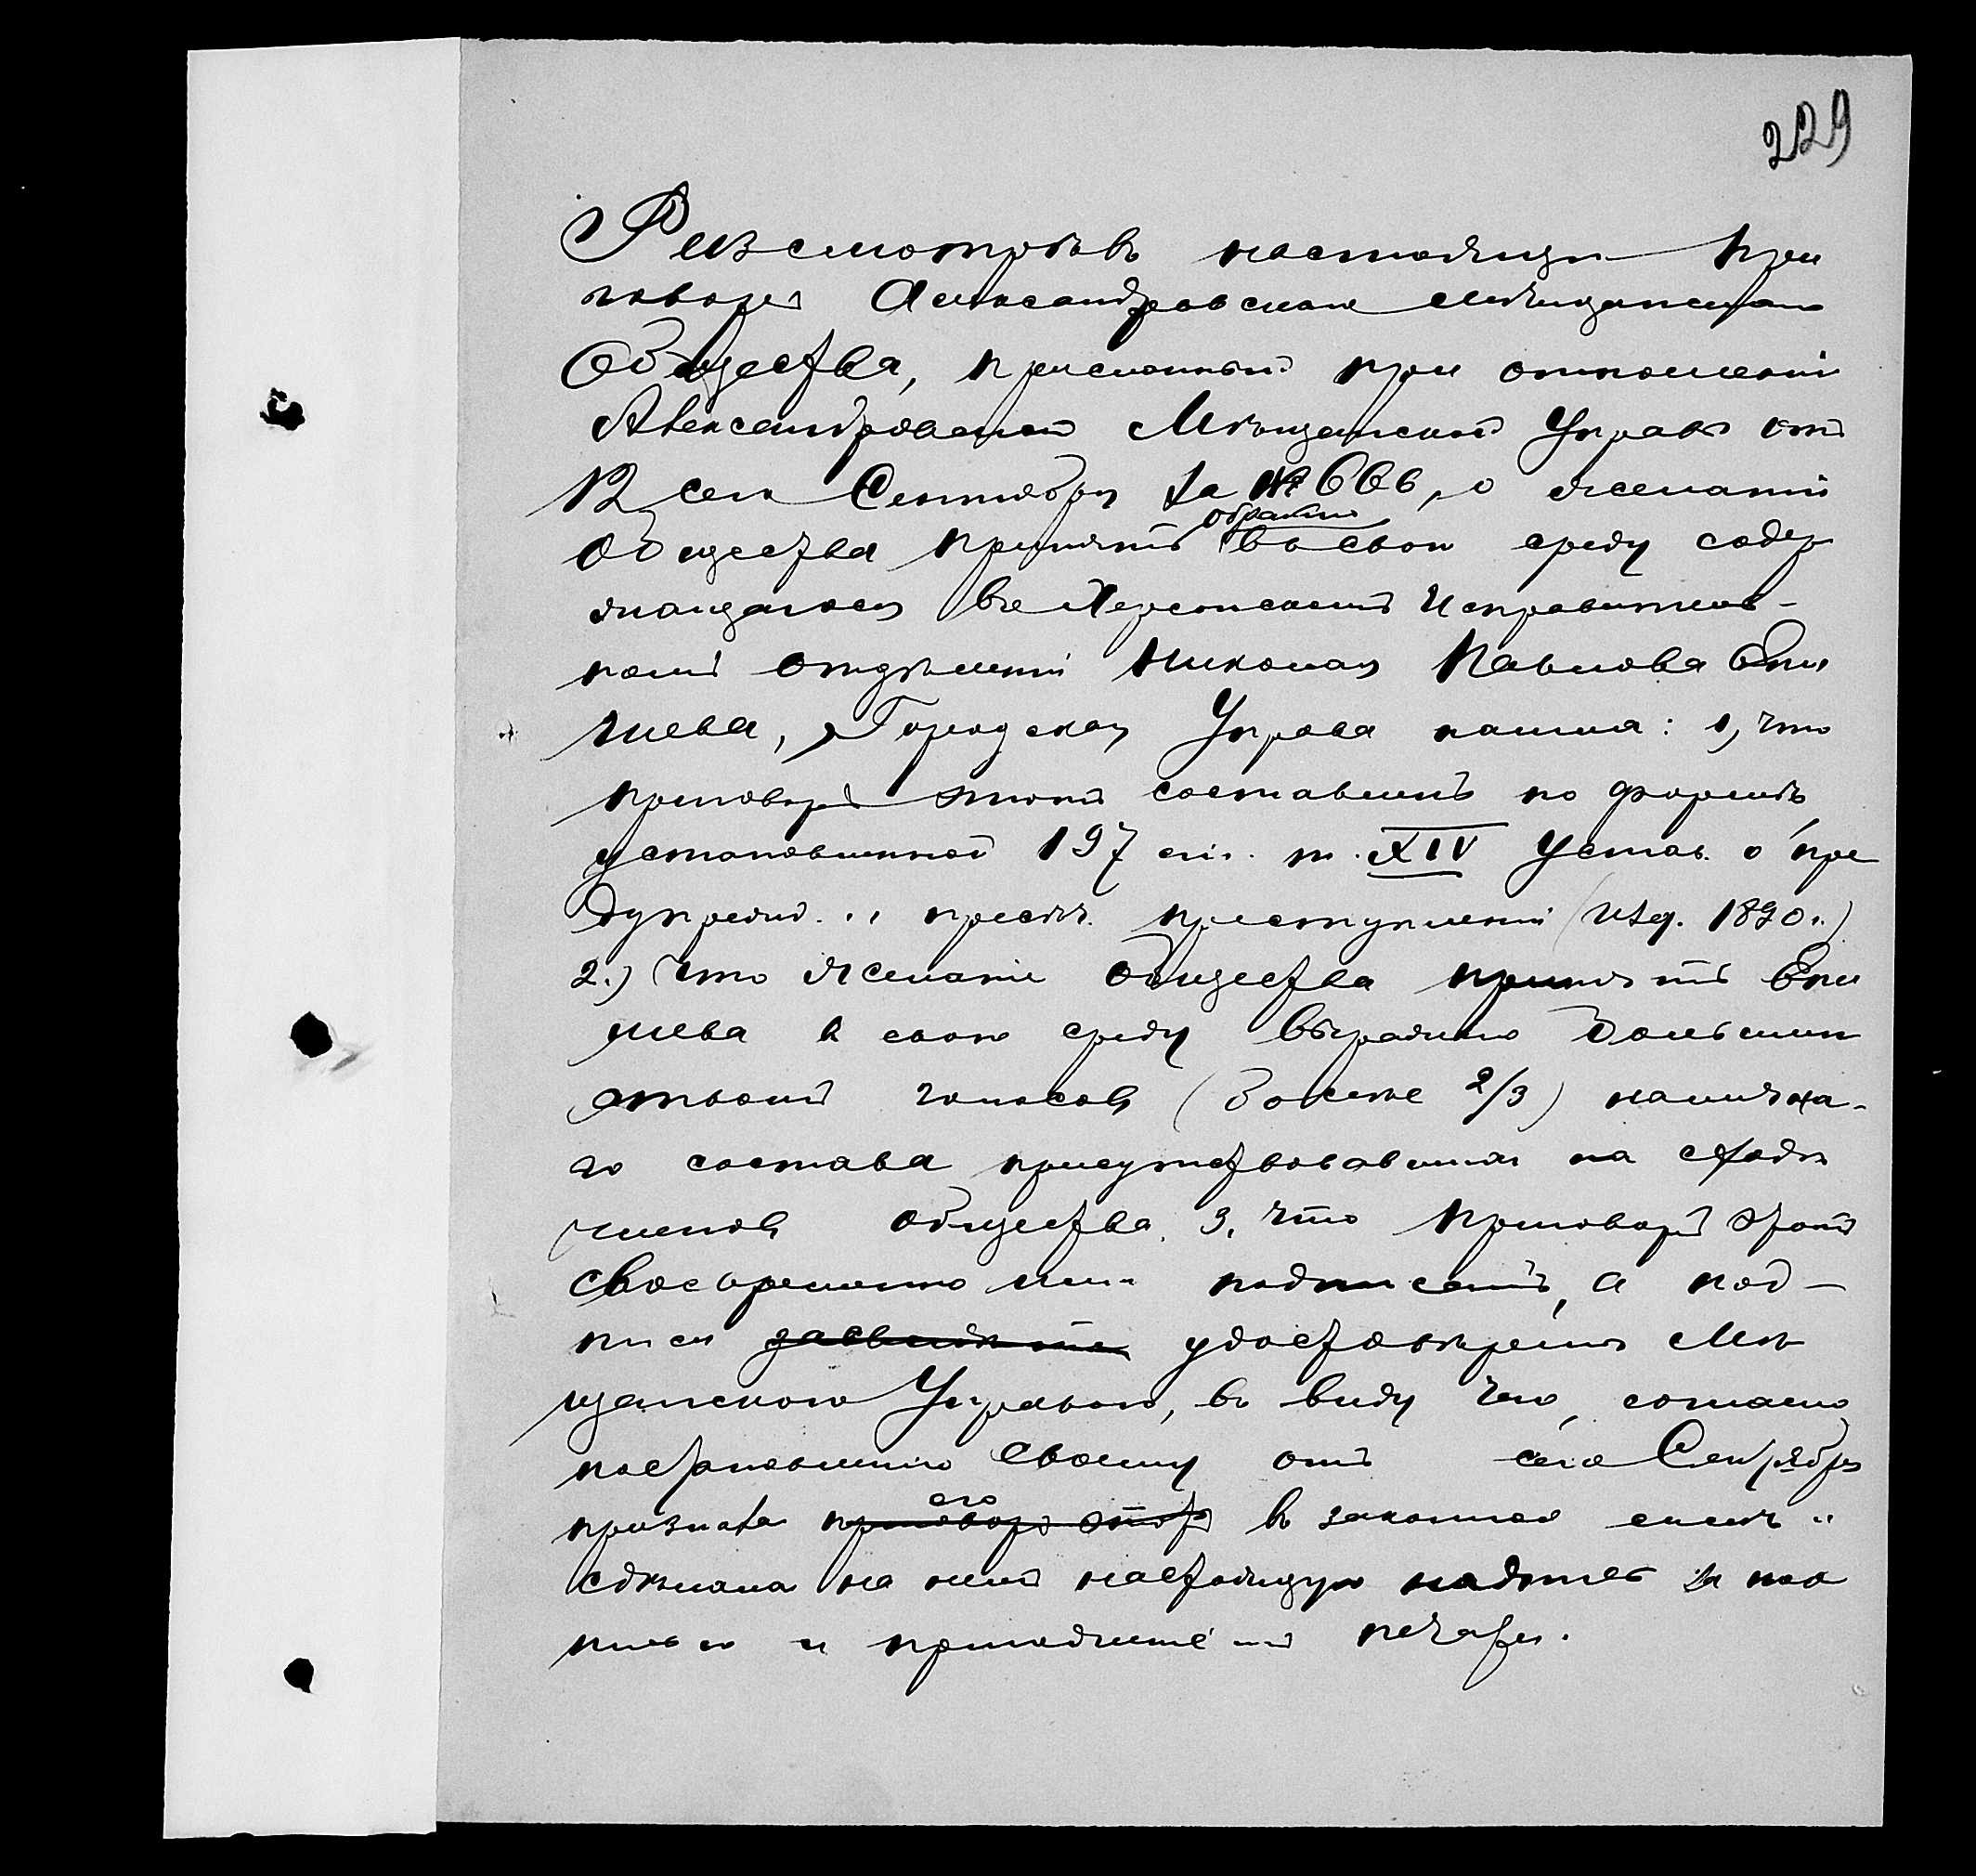 229
Разсмотрѣвъ настоящій при
говоръ Александровскаго мѣщанскаго
Общества, присланный при отношеніи
Александровской Мѣщанской Управы отъ
12 сего Сентября за № 666, о желаніи
обратно
Общества принять въ свою среду содер
жащагося въ Херсонскомъ Исправитель-
номъ отдѣленіи Николая Павлова Епи
шева, Городская Управа нашла: 1, что
приговоръ этотъ составленъ по формѣ
установленной 197 ст. т. XIV Устав. о пре
дупрежд. и пресѣч. преступленій (изд. 1890 г.)
2.) что желаніе Общества принять Епи
шева в свою среду выражено большин
ствомъ голосовъ (болѣе 2/3) налична-
го состава присутствовавшихъ на сходѣ
членовъ общества 3, что приговоръ этотъ
своевременно ими подписанъ, а под-
писи удостовѣрены Мѣ
щанскою Управою, въ виду чего, согласно
постановленію своему отъ сего Сентября
его
признала приговоръ этотъ въ законной силѣ и
сдѣлала на немъ настоящую надпись за под
писью и приложеніемъ печати.